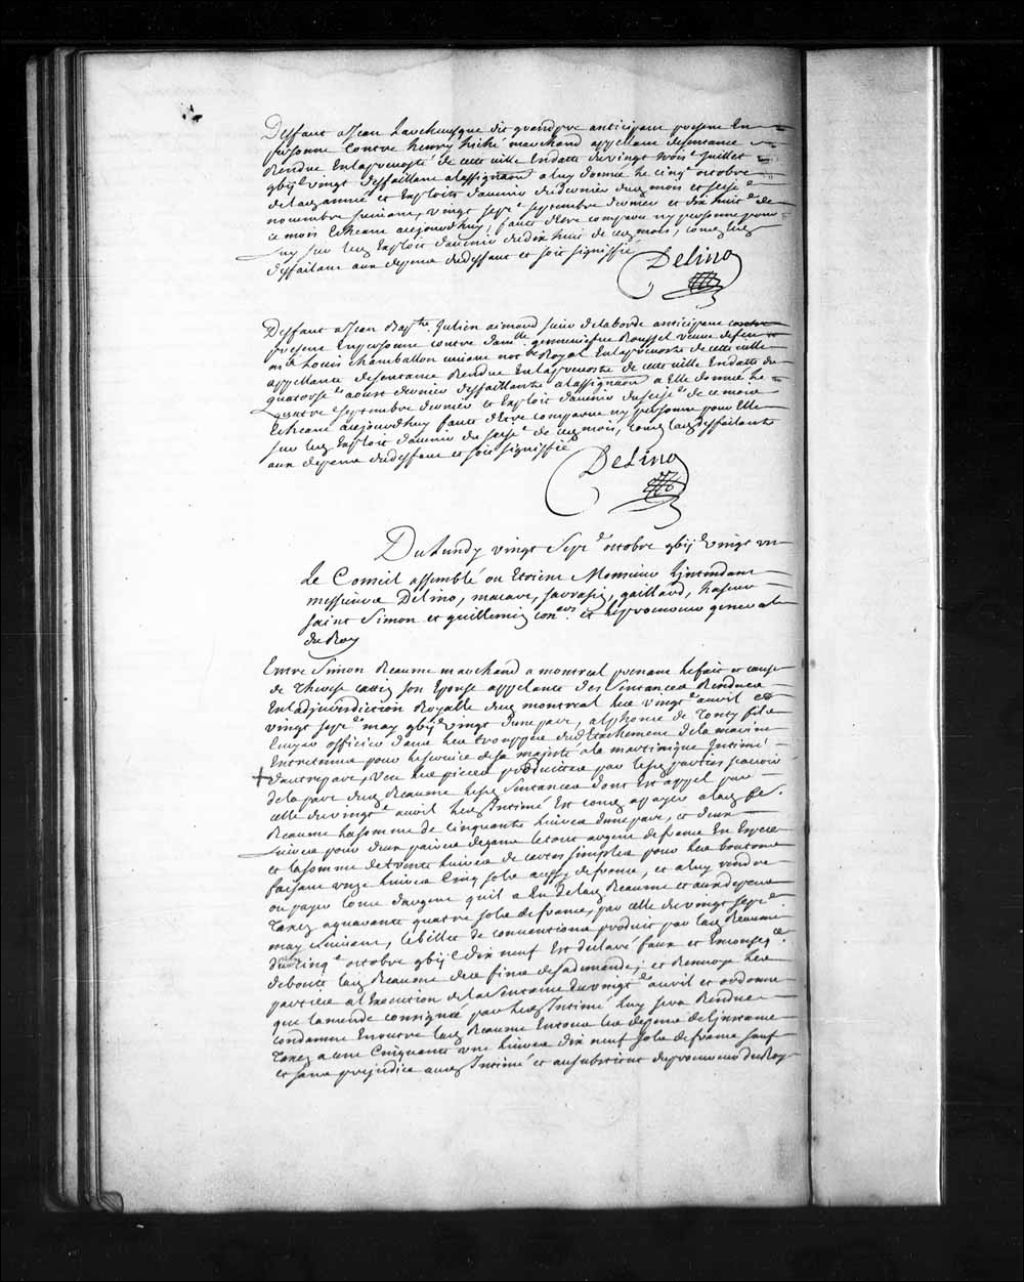 Deffaut a Jean Larchevesque dit grandpré anticipant present En
personne Contre henry hiché marchand appellant de sentence
Rendue En la prevosté de cette ville En datte du vingt trois Juillet
gbij^c vingt deffaillant a l'assignaon a luy donné le cinq^e octobre
de la année et Exploits d'avenir du dernier dud. mois et seize^e
novembre suivant, vingt sept^e septembre dernier et dix huit^e de
ce mois Echeant aujourdhuy; faute d'Etre comparu ny personne pour
luy sur led. Exploit d'avenir du dix huit de ced. mois, 
deffaillant aux depens du deffaut et soit signiffié
Delino
Deffaut a Jean Bap^te Julien aimond sieur de laborde anticipant contre
present En personne contre dam^lle genevieve Roussel veuve de feu
M^e Louis Chamballon vivant no^re Royal En la prevosté de cette ville
appellante de sentence Rendue En la prevosté de cette ville En datte du
quatorze^e aoust dernier deffaillante a l'assignaon a Elle donnée le
quatre septembre dernier et Exploit d'avenir du seize^e de ce mois
Echeant aujourdhuy faute d'Etre comparue ny personne pour Elle
sur led. Exploit d'avenir du seize^e de ced. mois, lad. deffaillante
aux depens du deffaut et soit signiffié
Delino
Du Lundy vingt Sept^e octobre gbij^c vingt un
Le Conseil assemblé ou Etoient Monsieur L'jntendant
messieurs Delino, macart, sarrasin, gaillard, hazeur
saint Simon et guillemin con^ers et le procureur general
du Roy
Entre Simon Reaume marchand a montreal prenant le fait et cause
de Therese catin son Epouse appellante des Sentences Rendues
En la jurisdiction Royalle dud. montreal les vingt^e avril et
vingt sept^e may gbij^c vingt d'une part, alphonce de Tonty fils
Enseigne officier dans les trouppes du detachement de la marine
Entretenues pour le service de sa majesté a la martinique Intimé
d'autre part, Veu les pieces produittes par lesd. parties scavoir
de la part dud. Reaume lesd. Sentences dont est appel par
celle du vingt^e avril led. Intimé Est cond. a payer aud.
Reaume la somme de cinquante livres d'une part, et deux
livres pour deux paires de gans le tout argent de france En Especes
et la somme de trente livres de cartes simples pour les boutons
faisant onze livres Cinq sols aussy de france, et a luy rendre
ou payer dud. Reaume et aux depens
Taxez a quarante quatre sols de france, par celle du vingt sept^e
may suivant, le billet de conventions produit par led. Reaume
du cinq^e octobre gbij^c dix neuf Est declaré faux et
deboute led. Reaume des fins de sa demande; et Renvoye les
parties a l'Execution de la Sentence du vingt^e avril et ordonne
que l'amende consignée par led. Intimé luy sera Rendue
condamne En outre led. Reaume En tous les depens de l'jnstance
Taxez a une Cinquante une livres dix neuf sols de france sauf
et sans prejudice aud. Intimé et au substitut du procureur du Roy